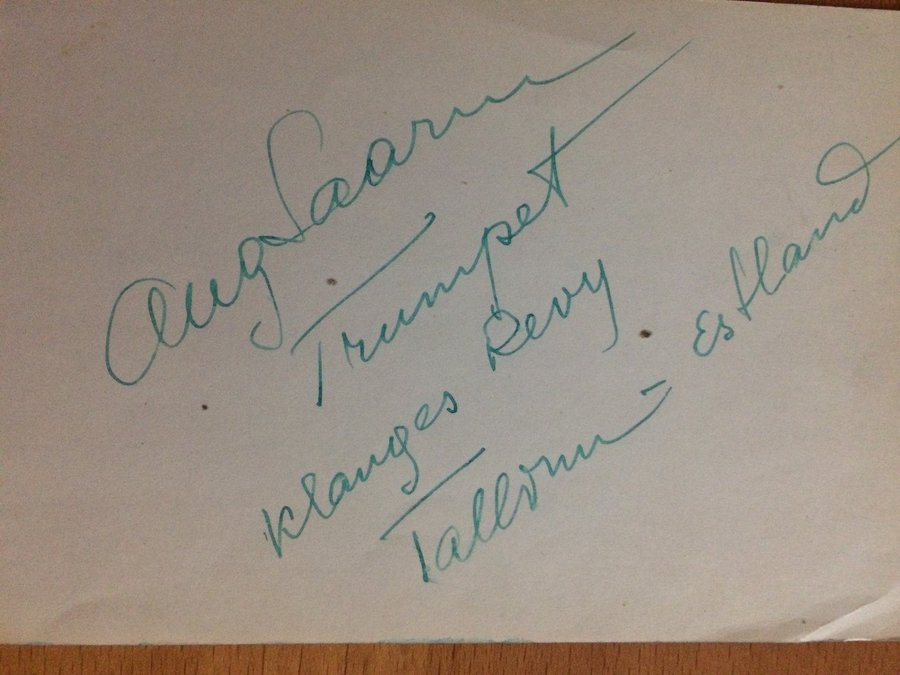 Aug Saarm
Trumpet
Klanges Revy
Tallinn - Estland